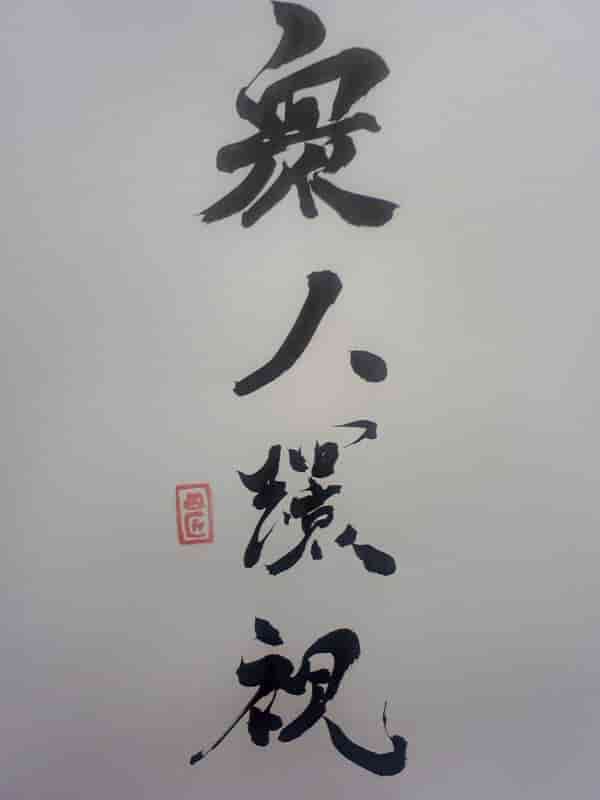 衆人環視